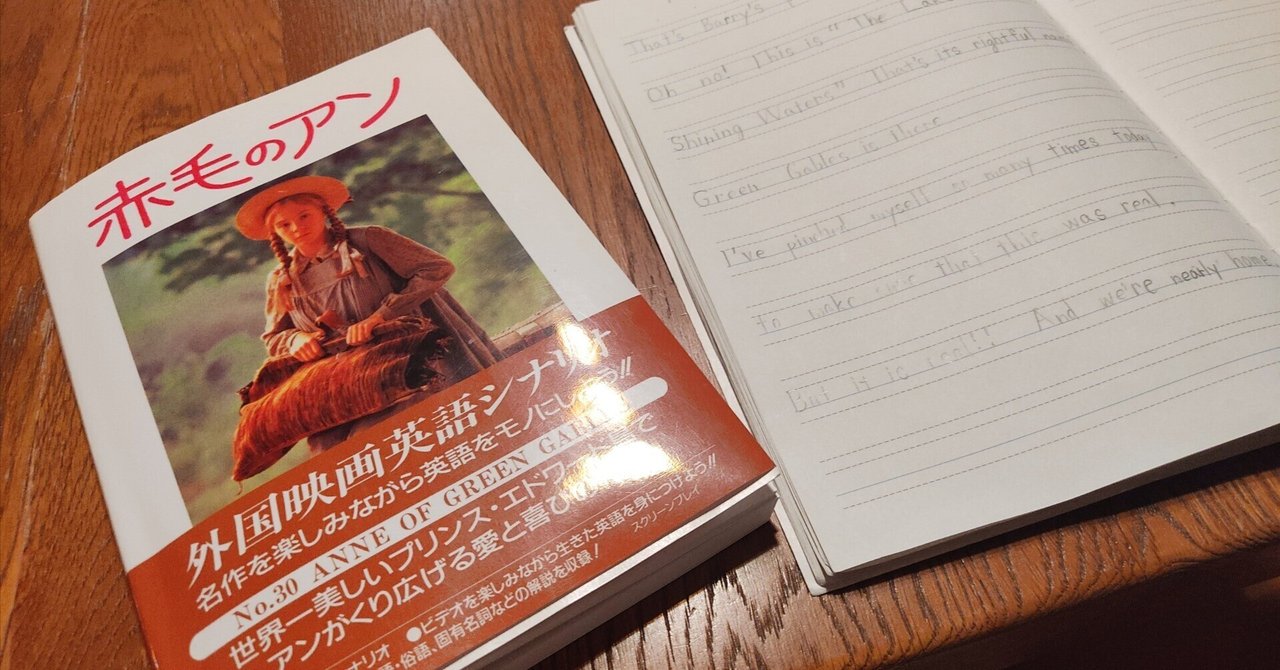 赤毛のアン
外国映画英語シナリオ
名作を楽しみながら英語をモノにしよう!!
No.30 ANNE OF GREEN GABLES
世界一美しいプリンス・エドワード島で
アンがくり広げる愛と喜び
●ビデオを楽しみながら生きた英語を身につけよう!!
・俗語、固有名詞などの解説を収録!
スクリーンプレイ
That's Barry's
Oh no! This is "The Lake
Shining Waters" That's its rightful name
Green Gables is there
I've pinched myself so many times today
to make sure that this was real.
But it is real!! And we're nearly home.